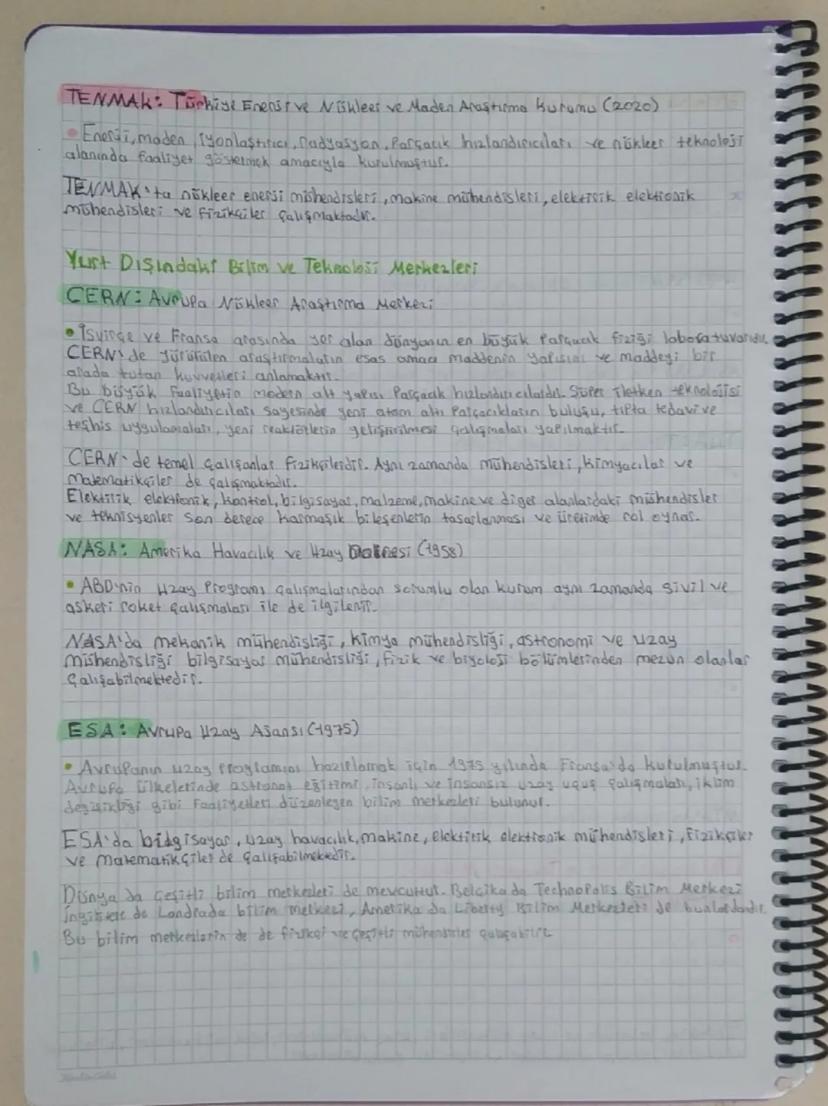 TENMAK: Türkiye Enerji ve Nükleer ve Maden Araştırma Kurumu (2020)
• Enerji, maden, iyonlaştırıcı, Radyasyon, Parçacık hızlandırıcıları ve nükleer teknoloji
alanında faaliyet göstermek amacıyla kurulmuştur.
TENMAK'ta nükleer enerji mühendisleri, makine mühendisleri, elektirik elektronik
mühendisleri ve fizikçiler çalışmaktadır.
Yurt Dışındaki Bilim ve Teknoloji Merkezleri
CERN: Avrupa Nükleer Araştırma Merkezi
• İsviçre ve Fransa arasında yer alan dünyanın en büyük Parçacık fiziği laboratuvarıdır.
CERN'de yürütülen araştırmaların esas amacı maddenin yapısını ve maddeyi bir
arada tutan kuvvetleri anlamaktır.
Bu büyük faaliyetin modern alt yapısı Parçacık hızlandırıcılardır. Süper iletken teknolojisi
ve CERN hızlandırıcıları sayesinde yeni atom altı Parçacıkların buluşu, tıpta tedavi ve
teşhis uygulamaları, yeni reaktörlerin geliştirilmesi çalışmaları yapılmaktır.
CERN'de temel çalışanlar fizikçilerdir. Aynı zamanda mühendisleri, kimyacılar ve
matematikçiler de çalışmaktadır.
Elektirik elektronik, kontrol, bilgisayar, malzeme, makine ve diğer alanlardaki mühendisler
ve teknisyenler son derece karmaşık bileşenlerin tasarlanması ve üretimde rol oynar.
NASA: Amerika Havacılık ve Uzay Dairesi (1958)
• ABD'nin uzay Programı çalışmalarından sorumlu olan kurum aynı zamanda sivil ve
askeri roket çalışmaları ile de ilgilenir.
NASA'da mekanik mühendisliği, kimya mühendisliği, astronomi ve uzay
mühendisliği bilgisayar mühendisliği, fizik ve biyoloji bölümlerinden mezun olanlar
çalışabilmektedir.
ESA: Avrupa Uzay Ajansı (1975)
• Avrupanın uzay programını hazırlamak için 1975 yılında Fransa'da kurulmuştur.
Avrupa ülkelerinde astronot eğitimi, insanlı ve insansız uzay uçuş çalışmaları, iklim
değişikliği gibi faaliyetleri düzenleyen bilim merkezleri bulunur.
ESA'da bidgisayar, uzay havacılık, makine, elektirik elektronik mühendisleri, fizikçiler
ve matematikçiler de çalışabilmektedir.
Dünya da çeşitli bilim merkezleri de mevcuttur. Belçika da Technopolis Bilim Merkezi
İngiltere de Londrada bilim merkezi, Amerika da Liberty Bilim Merkezleri de bunlardandır.
Bu bilim merkezlerin de de fizikçi ve çeşitli mühendisler çalışabilir.